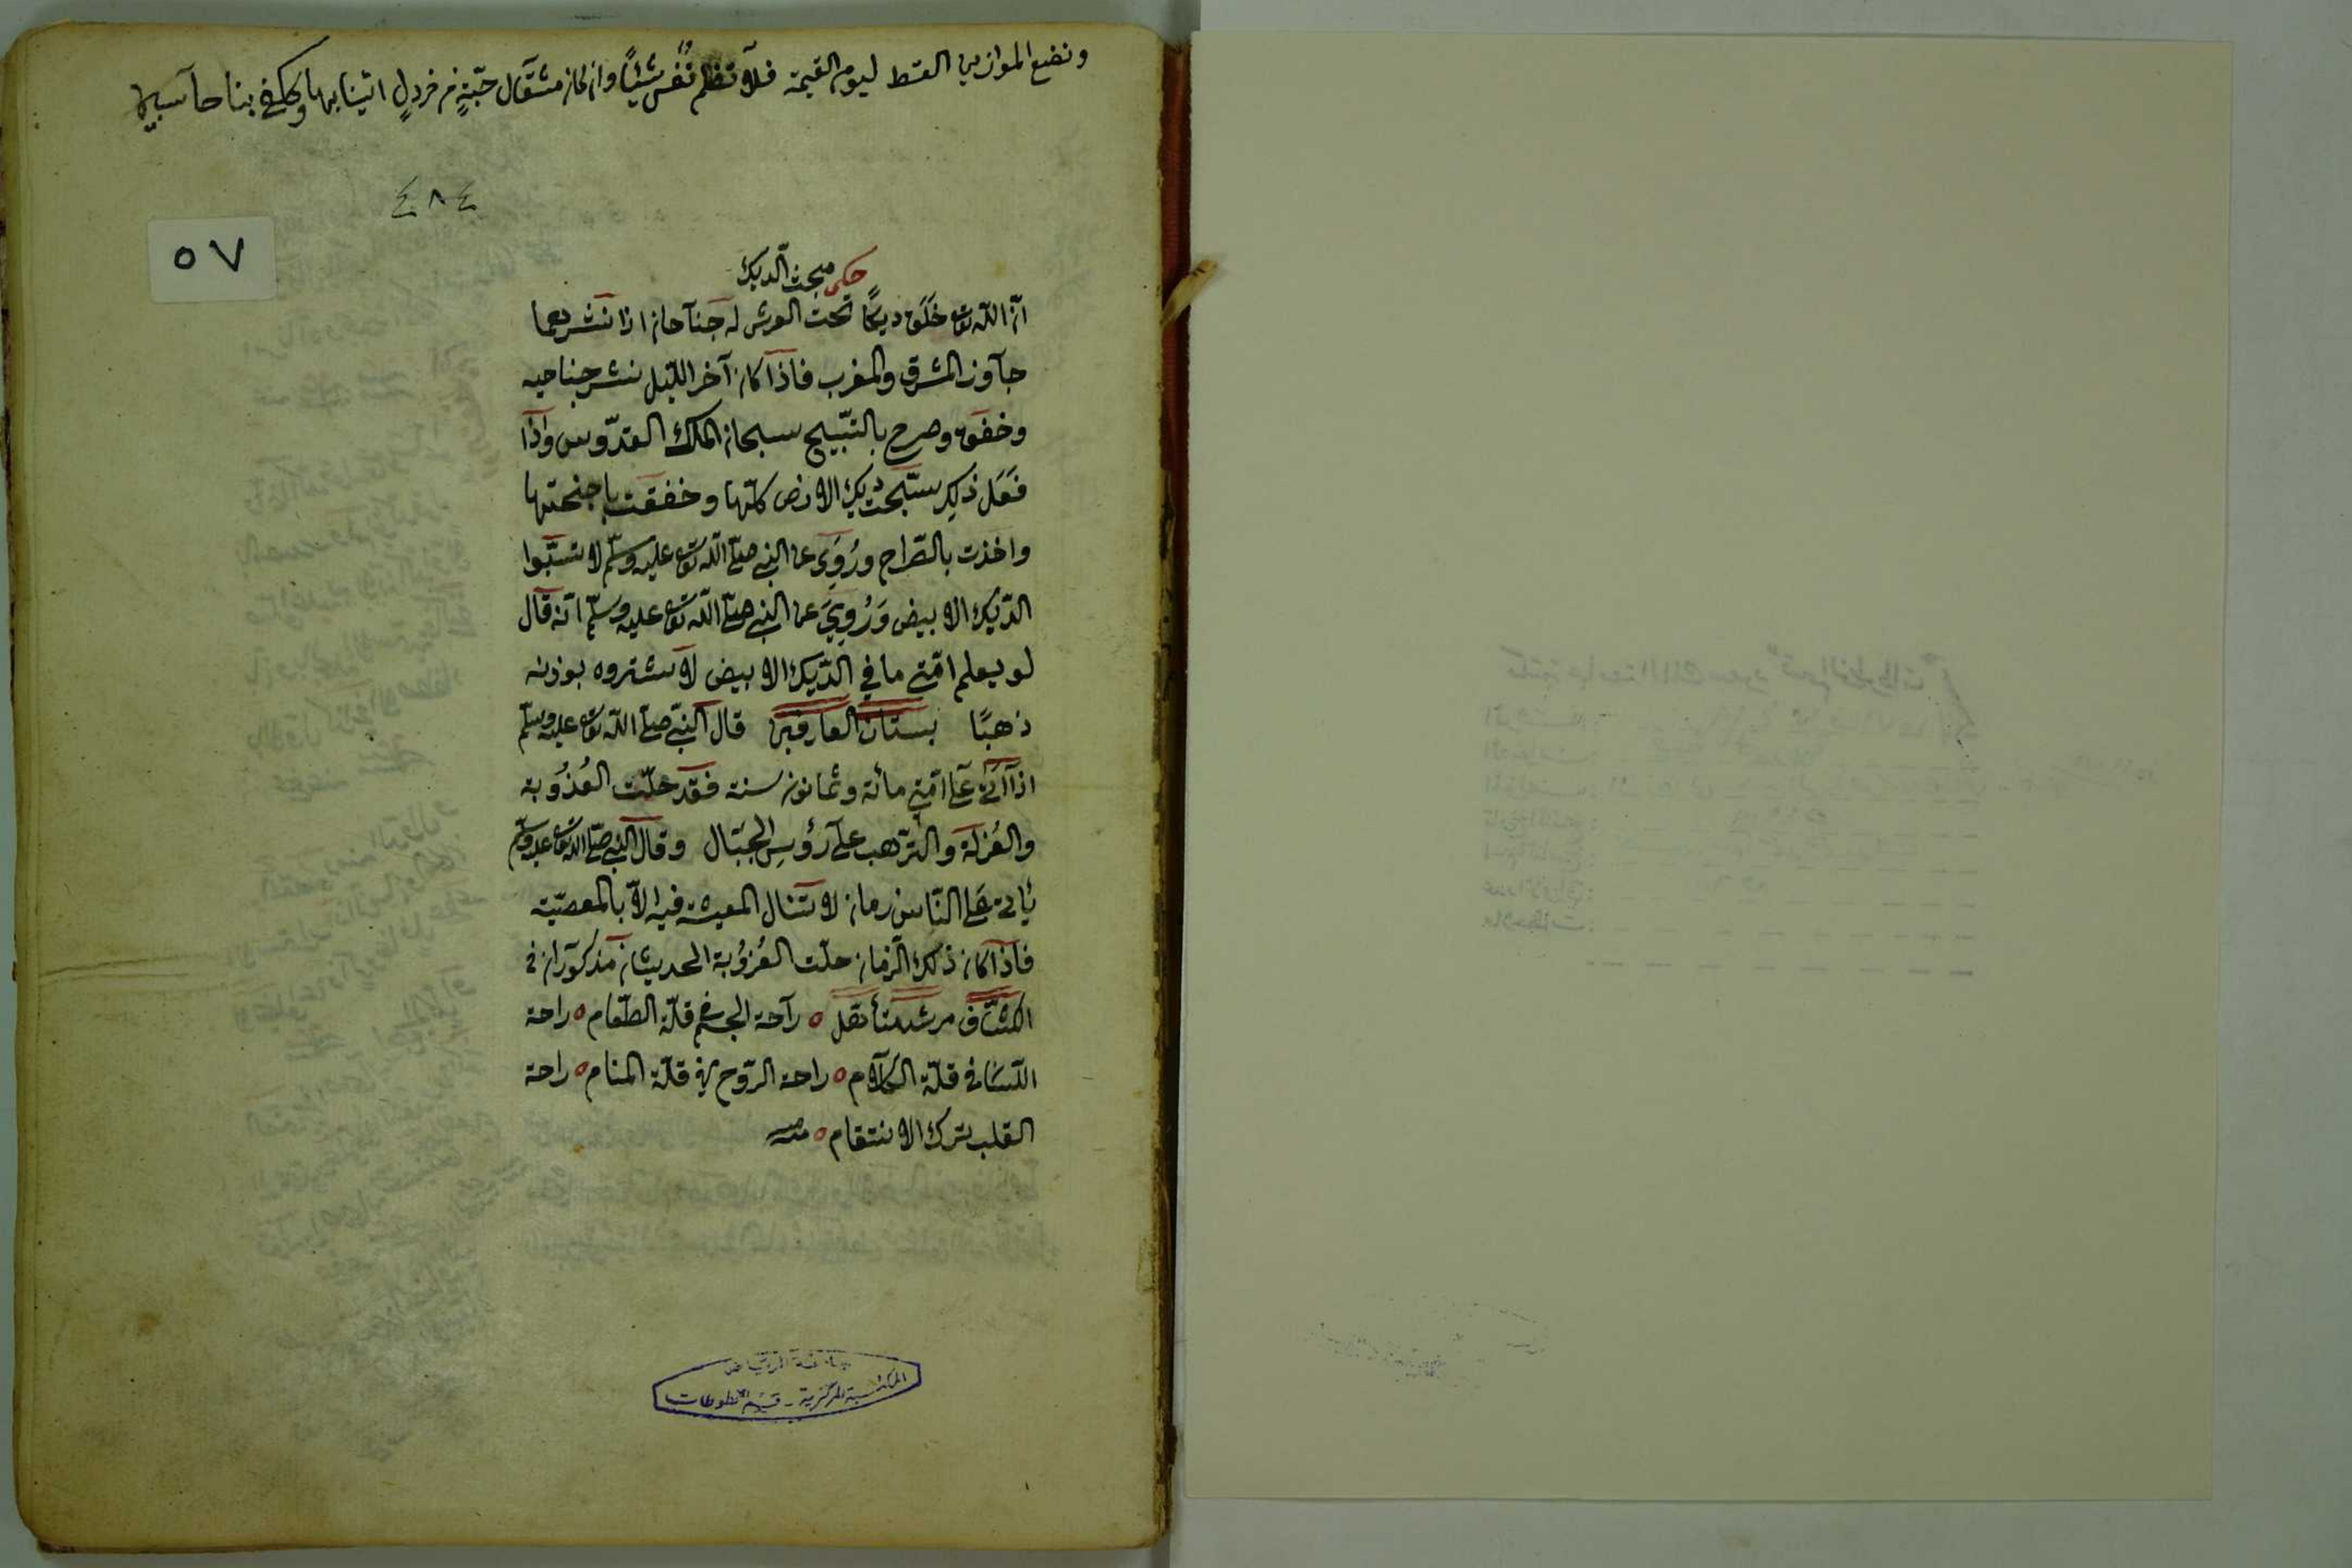 ونضع الموازين القسط ليوم القيمة فلا تظلم نفس شيئاً وان كان مثقال حبّةٍ من خردلٍ اتينا بها وكفى بنا حاسبين
٤٨٤
٥٧
حكى مبحث الدّيك
انّ اللّه تعالى خَلَقَ ديكًا تحت العرش له جناحان اذا نشرهما
جاوز المشرق والمغرب فاذا كان آخر اللّيل نشر جناحيه
وخفق وصرح بالتسبّيح سبحان الملك القدّوس واذا
فعَل ذلك سبّحت ديك الارض كلّها وخفقت باجنحتها
واخذت بالصّراح ورُوىَ عن النبى صلّى اللّه تعالى عليه وسلّم لا تسبّوا
الدّيك الابيض وَرُوِيَ عن النبى صلّى اللّه تعالى عليه وسلّم انّه قال
لو يعلم امّتى ما في الدّيك الابيض لاشتروه بوزنه
ذهبًا بستان العارفين قال النّبى صلّى اللّه تعالى عليه وسلّم
اذا اتى على امّتى مائة وثمانون سنة فقد حلّت العُذُوبة
والعُزلة والتّرهب على رؤسِ الجبال وقال النبى صلّى اللّه تعالى عليه وسلّم
يأتى على النّاس زمان لا تنال المعيشة فيه الّا بالمعصيّة
فاذا كان ذلك الزّمان حلّت العُزُوبة الحديثان مذكوران فى
الكشّاف نقل ٥ راحة الجسم فى قلّة الطّعام ٥ راحة
اللّسان فى قلّة الكلام ٥ راحة الرّوح فى قلّة المنام ٥ راحة
القلب ترك الانتقام ٥ منه
جامعة الرياض
المكتبة المركزية - قسم المخطوطات